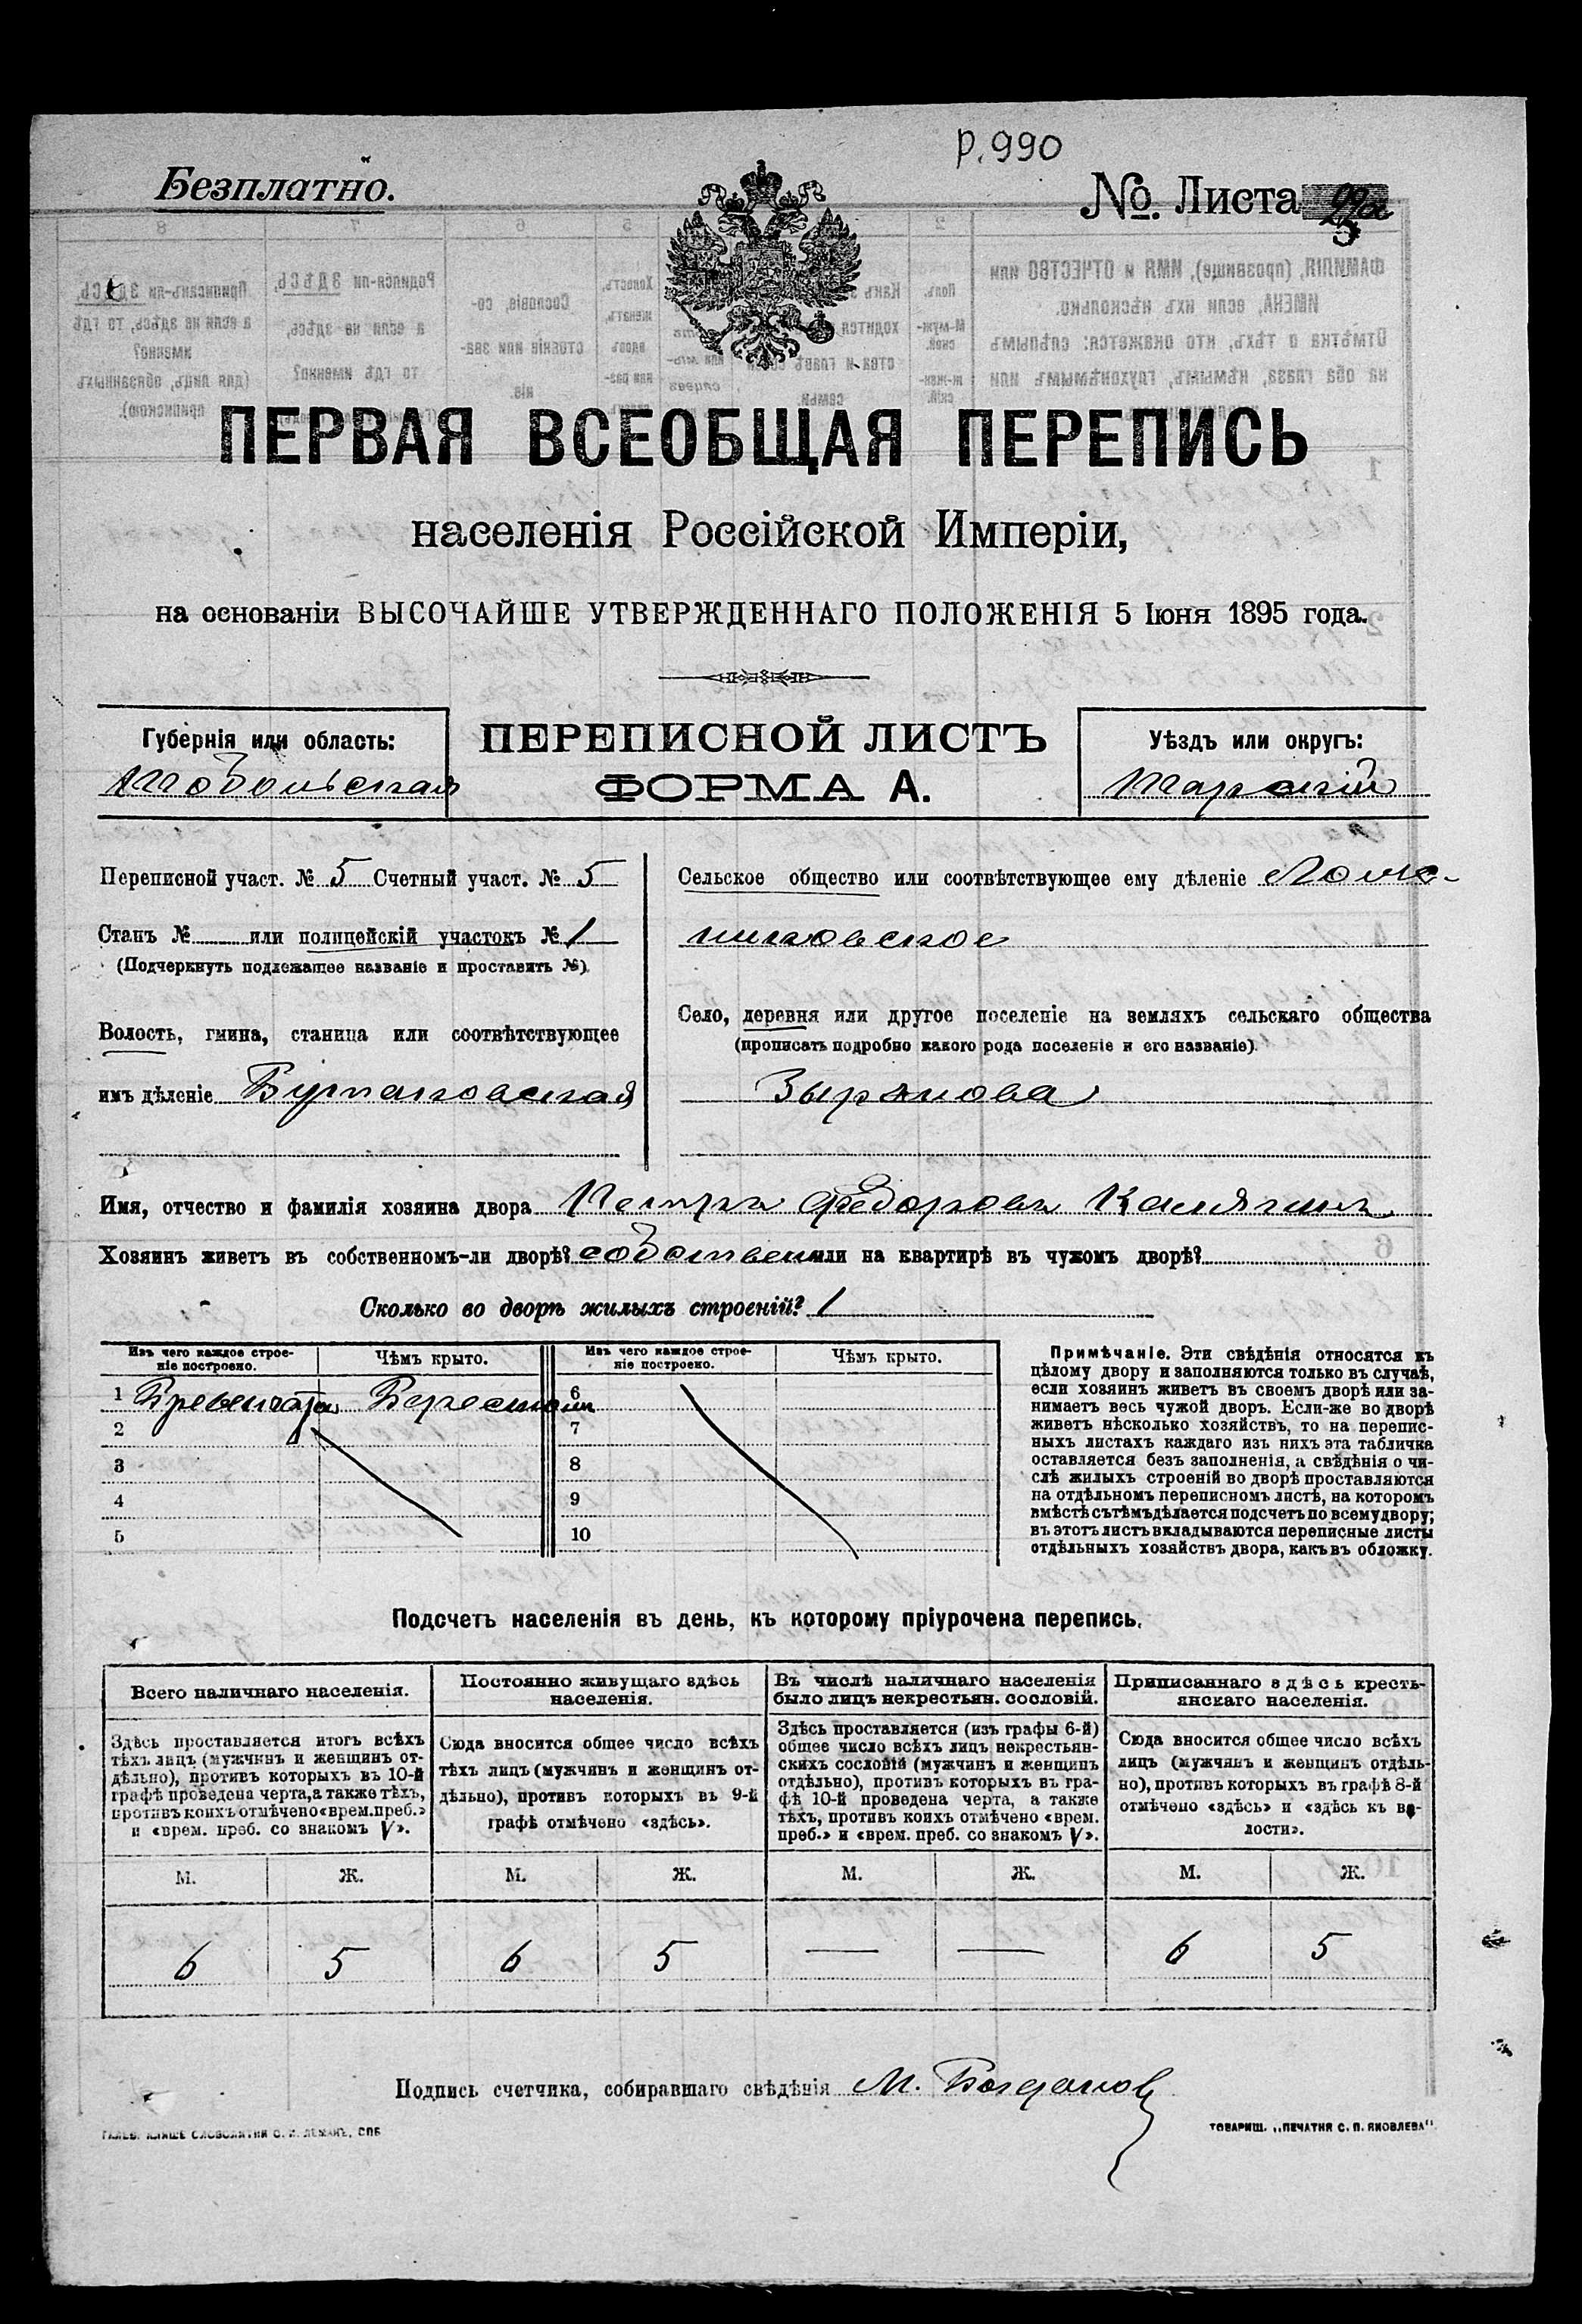 р. 990
Безплатно.
№. Листа
5
ПЕРВАЯ ВСЕОБЩАЯ ПЕРЕПИСЬ
населенія Россійской Имперіи,
на основаніи ВЫСОЧАЙШЕ УТВЕРЖДЕННАГО ПОЛОЖЕНІЯ 5 Іюня 1895 года.
Губернія или область:
Тобольская
ПЕРЕПИСНОЙ ЛИСТЪ
ФОРМА А.
Уѣздъ или округъ:
Тарскій
Переписной участ. № 5 Счетный участ. № 5
Станъ № или полицейскій участокъ № 1
(Подчеркнуть подлежащее названіе и проставить №).
Волость, гмина, станица или соотвѣтствующее
имъ дѣленіе Бутаковская
Сельское общество или соотвѣтствующее ему дѣленіе
Село, деревня или другое поселеніе на земляхъ сельскаго общества
(прописать подробно какого рода поселеніе и его названіе).
Зырянова
Имя, отчество и фамилія хозяина двора Петръ Федоровъ Калягинъ
Хозяинъ живетъ въ собственномъ-ли дворѣ? собственн или на квартирѣ въ чужомъ дворѣ?
Сколько во дворѣ жилыхъ строеній? 1
Изъ чего каждое строе-
ніе построено.
Чѣмъ крыто.
1 Бревенчатый Берестою
2
3
4
5
Изъ чего каждое строе-
ніе построено.
Чѣмъ крыто.
6
7
8
9
10
Примѣчаніе. Эти свѣдѣнія относятся къ
цѣлому двору и заполняются только въ случаѣ,
если хозяинъ живетъ въ своемъ дворѣ или за-
нимаетъ весь чужой дворъ. Если-же во дворѣ
живетъ нѣсколько хозяйствъ, то на перепис-
ныхъ листахъ каждаго изъ нихъ эта табличка
оставляется безъ заполненія, а свѣдѣнія о чи-
слѣ жилыхъ строеній во дворѣ проставляются
на отдѣльномъ переписномъ листѣ, на которомъ
вмѣстѣ съ тѣмъ дѣлается подсчетъ по всему двору;
въ этотъ листъ вкладываются переписные листы
отдѣльныхъ хозяйствъ двора, какъ въ обложку.
Подсчетъ населенія въ день, къ которому пріурочена перепись.
Всего наличнаго населенія.
Здѣсь проставляется итогъ всѣхъ
тѣхъ лицъ (мужчинъ и женщинъ от-
дѣльно), противъ которыхъ въ 10-й
графѣ проведена черта, а также тѣхъ,
противъ коихъ отмѣчено «врем. преб.»
и «врем. преб. со знакомъ V».
М. Ж.
6 5
Постоянно живущаго здѣсь
населенія.
Сюда вносится общее число всѣхъ
тѣхъ лицъ (мужчинъ и женщинъ от-
дѣльно), противъ которыхъ въ 9-й
графѣ отмѣчено «здѣсь».
М. Ж.
6 5
Въ числѣ наличнаго населенія
было лицъ некрестьян. сословій.
Здѣсь проставляется (изъ графы 6-й)
общее число всѣхъ лицъ некрестьян-
скихъ сословій (мужчинъ и женщинъ
отдѣльно), противъ которыхъ въ гра-
фѣ 10-й проведена черта, а также
тѣхъ, противъ коихъ отмѣчено «врем.
преб.» и «врем. преб. со знакомъ V».
М. Ж.
— —
Приписаннаго здѣсь кресть-
янскаго населенія.
Сюда вносится общее число всѣхъ
лицъ (мужчинъ и женщинъ отдѣль-
но), противъ которыхъ въ графѣ 8-й
отмѣчено «здѣсь» и «здѣсь къ во-
лости».
М. Ж.
6 5
Подпись счетчика, собиравшаго свѣдѣнія М. Богданов
ГАЛЬВ. КЛИШЕ СЛОВОЛИТНИ О. И. ЛЕМАНЪ, СПБ
ТОВАРИЩ. „ПЕЧАТНЯ С. П. ЯКОВЛЕВА“.